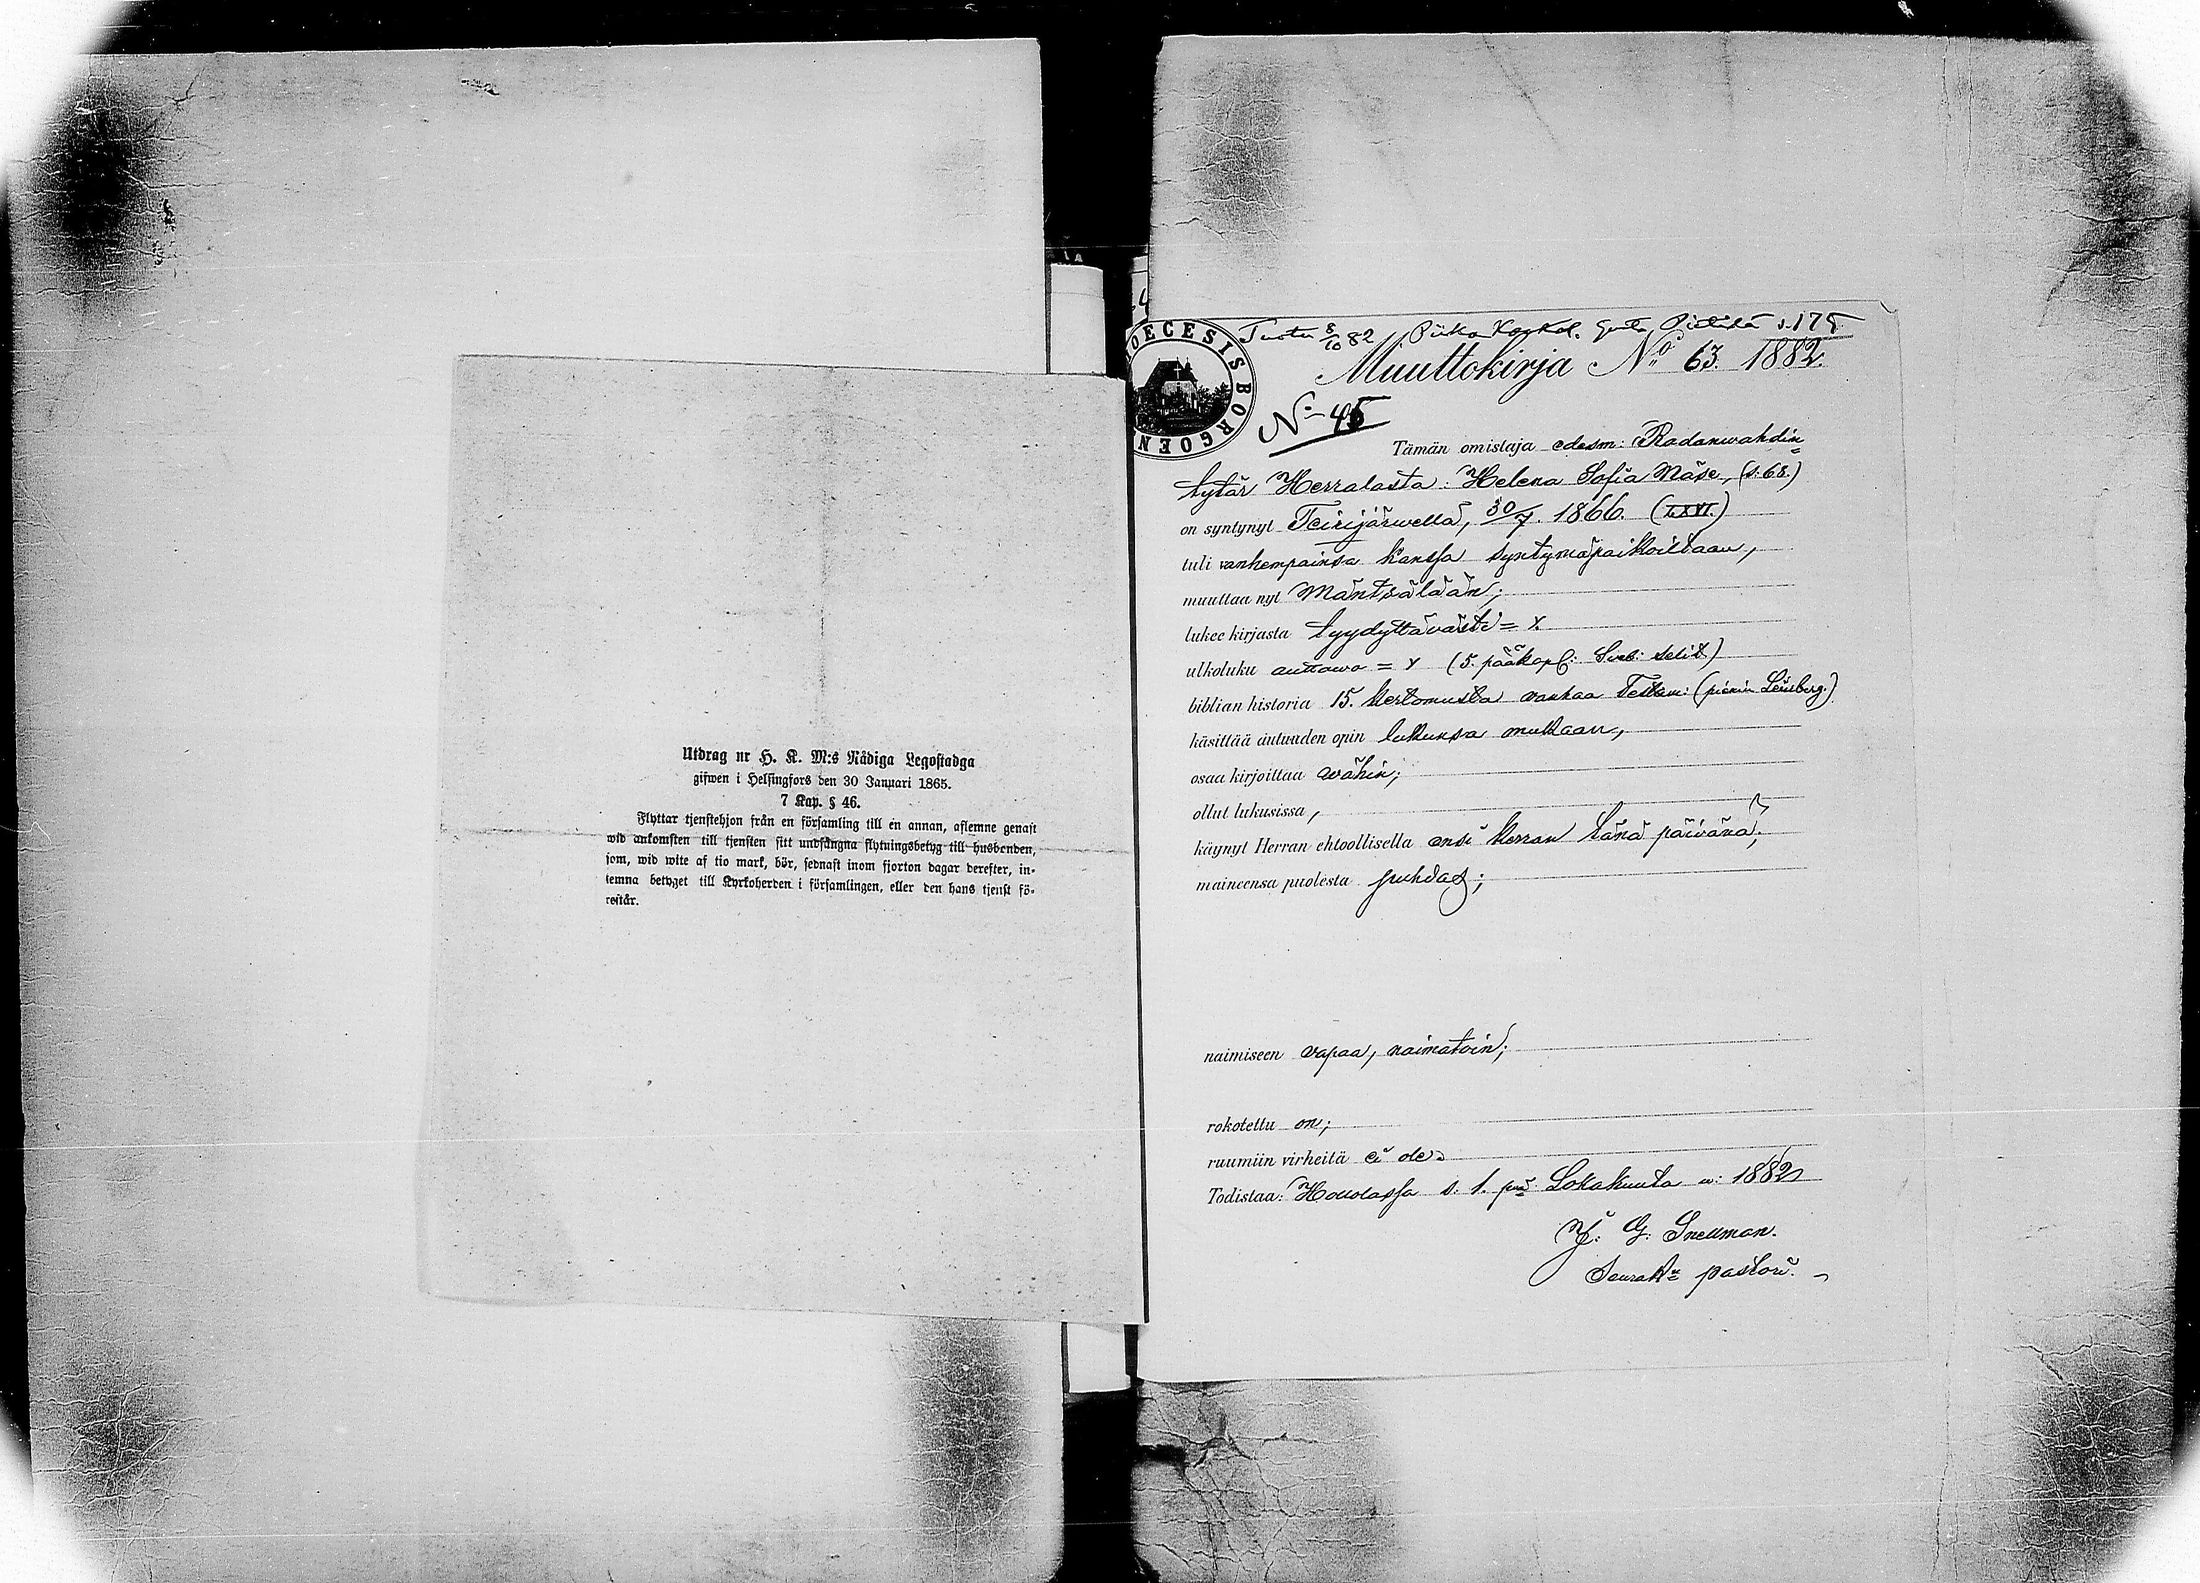 Utdrag nr H. K. M:s Nådiga Legostadga
gifwen i Helsingfors den 30 Januari 1865.
7 Kap. § 46.
Flyttar tjenstehjon från en församling till en annan, aflemne genast
wid ankomsten till tjensten sitt undfångna flytningsbetyg till husbonden,
som, wid wite af tio mark, bör, sednast inom fjorton dagar derefter, in-
lemna betyget till Kyrkoherden i församlingen, eller den hans tjenst fö-
restår.
DIOECESIS BORGOEN
Tuotu 8/10 82 Piika Pietilä s. 175
Muuttokirja No 63. 1882.
No 45
Tämän omistaja edesm: Radanwahdin
tytär Herralasta: Helena Sofia Mäse, (s. 68.)
on syntynyt Teirijärwellä, 30/7. 1866. (LXVI.)
tuli vanhempainsa kanssa syntymäpaikoiltaan,
muuttaa nyt Mäntsälään;
lukee kirjasta tyydyttäwästi = x.
ulkoluku auttawa = x (5. pääkapl: Sveb: selit.)
biblian historia 15. kertomusta vanhaa Testam: (pienin Leinberg.)
käsittää autuuden opin lukunsa mukaan,
osaa kirjoittaa wähin;
ollut lukusissa,
käynyt Herran ehtoollisella ensi kerran tänä päivänä;
maineensa puolesta puhdas;
naimiseen vapaa, naimatoin;
rokotettu on;
ruumiin virheitä ei ole.
Todistaa: Hollolassa s. 1. pnä Lokakuuta w: 1882
G. Snellman.
Seurak: pastori.